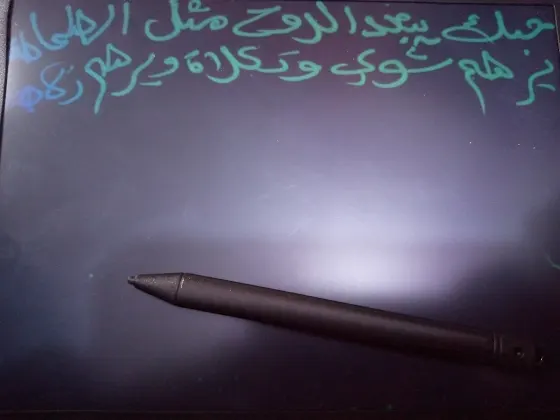 حبك يبعد الروح مثل الطماطه
يرهم شوي وتكلاة ويرهم زلاطه